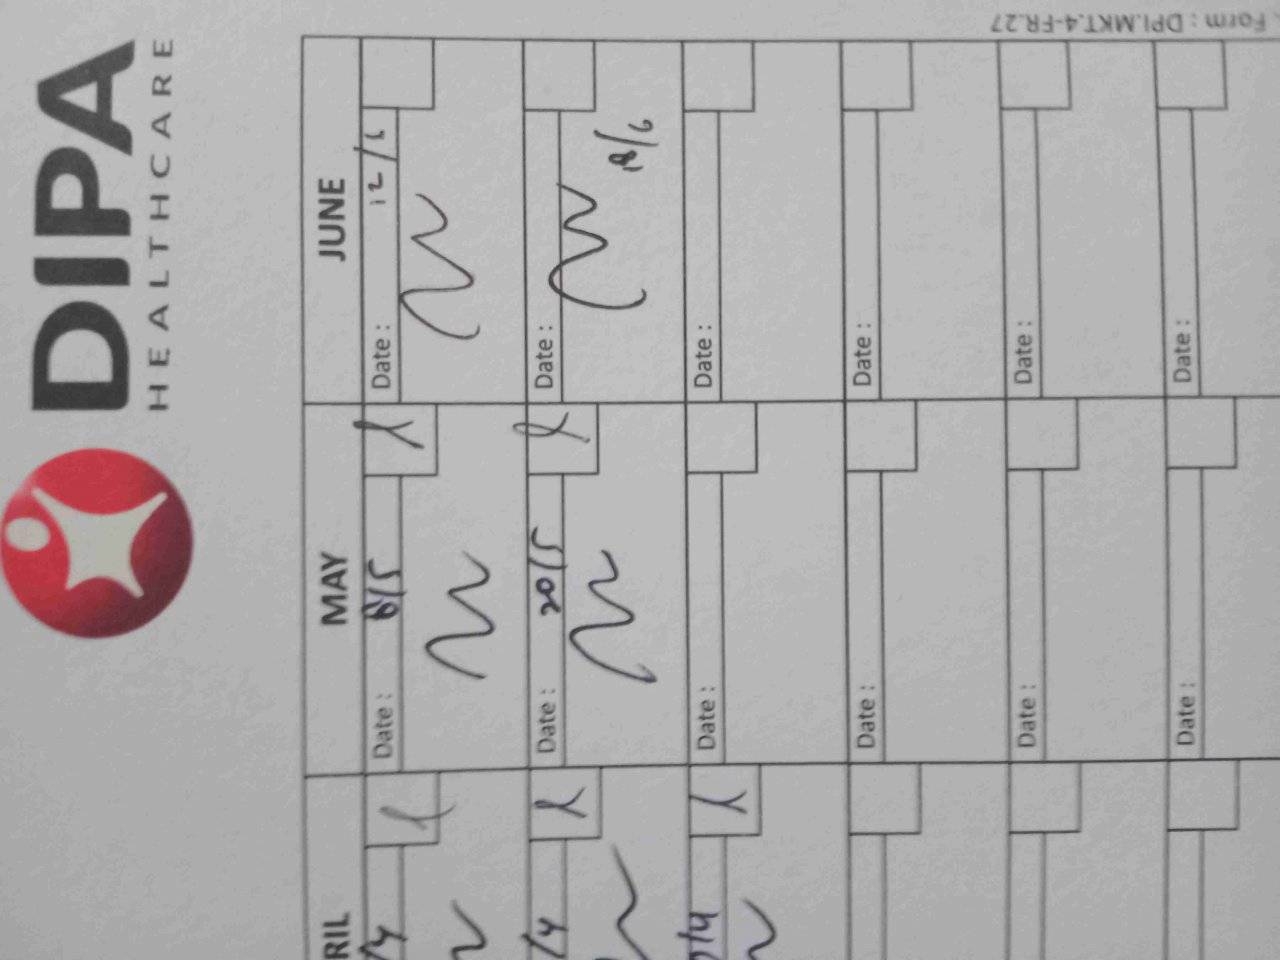 DIPA
HEALTHCARE
Form : DPI.MKT.4-FR.27
RIL MAY JUNE
/4 Date : 8/5 Date : 12/6
/4 Date : 20/5 Date : 18/6
/4 Date : Date :
Date : Date :
Date : Date :
Date : Date :